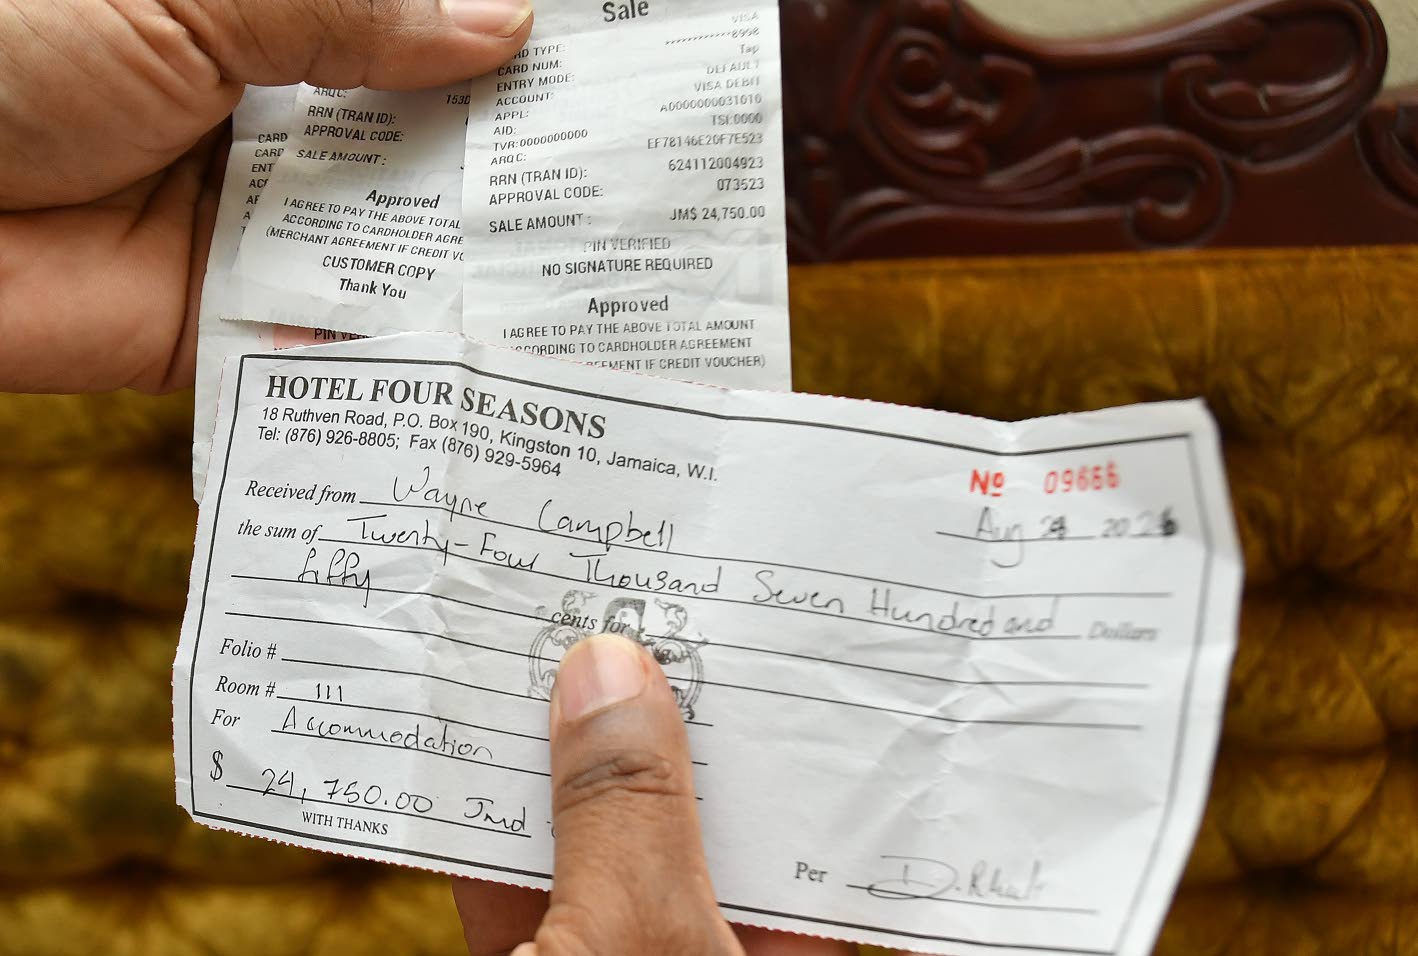 Sale
VISA
RD TYPE: ************8998
CARD NUM: Tap
ENTRY MODE: DEFAULT
ACCOUNT: VISA DEBIT
APPL: A0000000031010
AID: TSI:0000
TVR:0000000000
ARQC: EF78146E20F7E523
RRN (TRAN ID): 624112004923
APPROVAL CODE: 073523
SALE AMOUNT : JM$ 24,750.00
PIN VERIFIED
NO SIGNATURE REQUIRED
Approved
I AGREE TO PAY THE ABOVE TOTAL AMOUNT
CCORDING TO CARDHOLDER AGREEMENT
EEMENT IF CREDIT VOUCHER)
ARQC: 153D
RRN (TRAN ID):
APPROVAL CODE:
SALE AMOUNT :
Approved
I AGREE TO PAY THE ABOVE TOTAL
ACCORDING TO CARDHOLDER AGRE
(MERCHANT AGREEMENT IF CREDIT VO
CUSTOMER COPY
Thank You
CARD
CARD
ENT
PIN VER
HOTEL FOUR SEASONS
18 Ruthven Road, P.O. Box 190, Kingston 10, Jamaica, W.I.
Tel: (876) 926-8805; Fax (876) 929-5964
Nº 09666
Aug 202
Received from Wayne Campbell
the sum of Twenty-Four Thousand Seven Hundred and Dollars
fiffy
cents for
Folio #
Room # 111
For Accommodation
$ 24,750.00 Jmd
WITH THANKS
Per